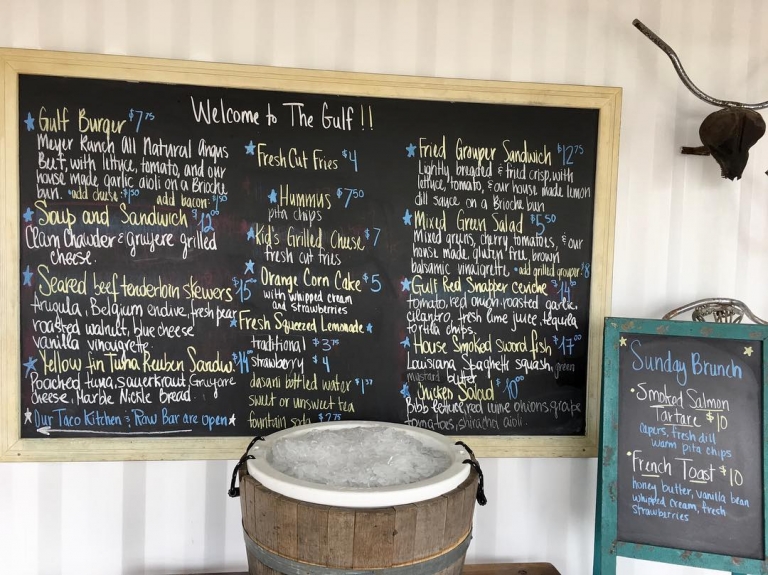 Welcome to The Gulf!!
Gulf Burger $7.75
Meyer Ranch All Natural Angus
Beef, with lettuce, tomato, and our
house made garlic aioli on a Brioche
bun. *add cheese: $1.50 add bacon: $1.50
Soup and Sandwich $12.00
Clam Chowder & gruyere grilled
cheese.
Seared beef tenderloin skewers $15
Arugula, Belgium endive, fresh pear
roasted walnut, blue cheese
vanilla vinaigrette.
Yellow fin Tuna Reuben Sandw. $14
Poached tuna, sauerkraut, Gruyere
cheese, Marble Rickle Bread
Our Taco Kitchen & Raw Bar are open
Fresh Cut Fries $4
Hummus $7.50
pita chips
Kid's Grilled Cheese $7
fresh cut fries
Orange Corn Cake $5
with whipped cream
and strawberries
Fresh Squeezed Lemonade
traditional $3.75
strawberry $4
dasani bottled water
sweet or unsweet tea
fountain soda $2.75
Fried Grouper Sandwich $12.75
Lightly breaded & fried crisp, with
lettuce, tomato, & our house made lemon
dill sauce on a Brioche bun
Mixed Green Salad $5.50
Mixed greens, cherry tomatoes, & our
house made gluten free brown
balsamic vinaigrette *add grilled grouper $8
Gulf Red Snapper ceviche $14
tomato, red onion, roasted garlic
cilantro, fresh lime juice, tequila
tortilla chips.
House Smoked sword fish $17.00
Louisiana Spaghetti squash, green
mustard butter
Chicken Salad $10.00
Bibb lettuce, red wine onions, grape
tomatoes, shiracha aioli
Sunday Brunch
Smoked Salmon
Tartare $10
capers, fresh dill
warm pita chips
French Toast $10
honey butter, vanilla bean
whipped cream, fresh
strawberries